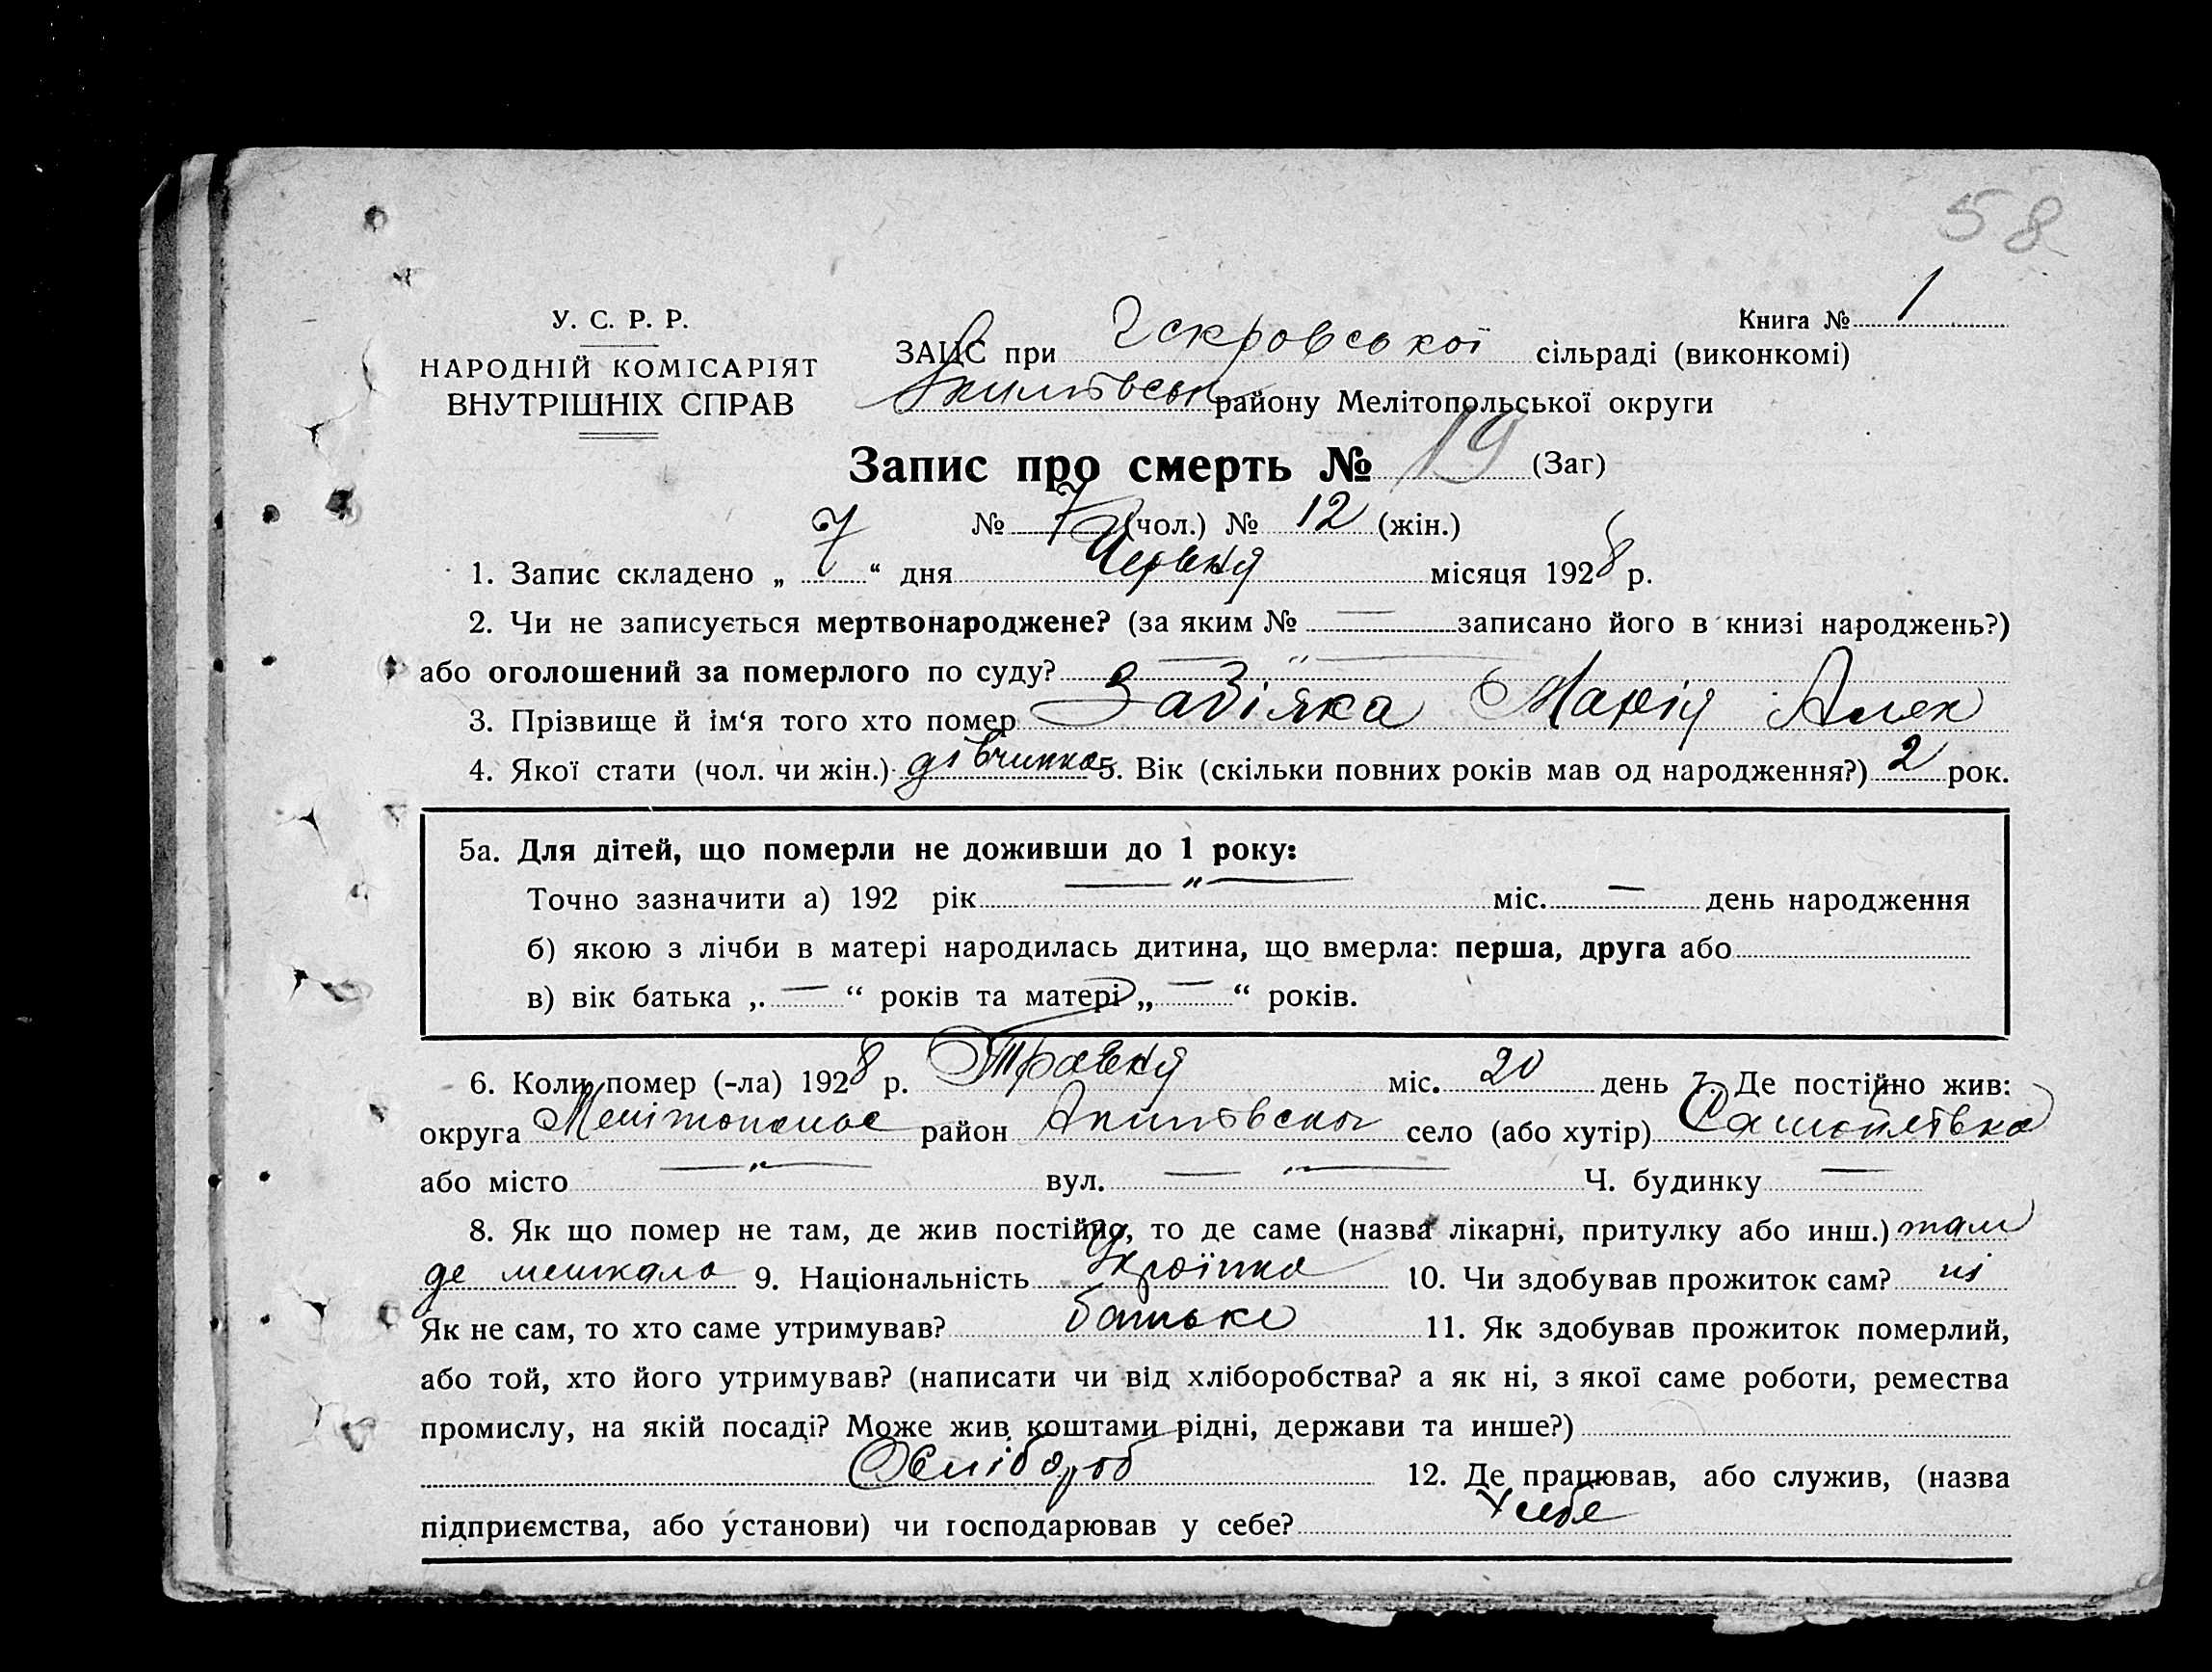 58
Книга № 1
У. С. Р. Р.
НАРОДНІЙ КОМІСАРІЯТ
ВНУТРІШНІХ СПРАВ
ЗАЦС при Іскровської сільраді (виконкомі)
району Мелітопольської округи
Запис про смерть № 19 (Заг)
№ 7 (чол.) № 12 (жін.)
1. Запис складено „ 7 “ дня Червня місяця 1928 р.
2. Чи не записується мертвонароджене? (за яким № — записано його в книзі народжень?)
або оголошений за померлого по суду? — „ —
3. Прізвище й ім‘я того хто помер Забіяка Марія Алек
4. Якої стати (чол. чи жін.) дівчинка 5. Вік (скільки повних років мав од народження?) 2 рок.
5а. Для дітей, що померли не доживши до 1 року:
Точно зазначити а) 192 рік — „ — міс. — день народження
б) якою з лічби в матері народилась дитина, що вмерла: перша, друга або
в) вік батька „ — “ років та матері „ — “ років.
6. Коли помер (-ла) 1928 р. Травня міс. 20 день 7. Де постійно жив:
округа район село (або хутір)
або місто — „ — вул. — „ — Ч. будинку —
8. Як що помер не там, де жив постійно, то де саме (назва лікарні, притулку або инш.) там
де мешкала 9. Національність Украінка 10. Чи здобував прожиток сам? ні
Як не сам, то хто саме утримував? батьки 11. Як здобував прожиток померлий,
або той, хто його утримував? (написати чи від хліборобства? а як ні, з якої саме роботи, ремества
промислу, на якій посаді? Може жив коштами рідні, держави та инше?)
Хлібороб 12. Де працював, або служив, (назва
підприємства, або установи) чи господарював у себе? у себе